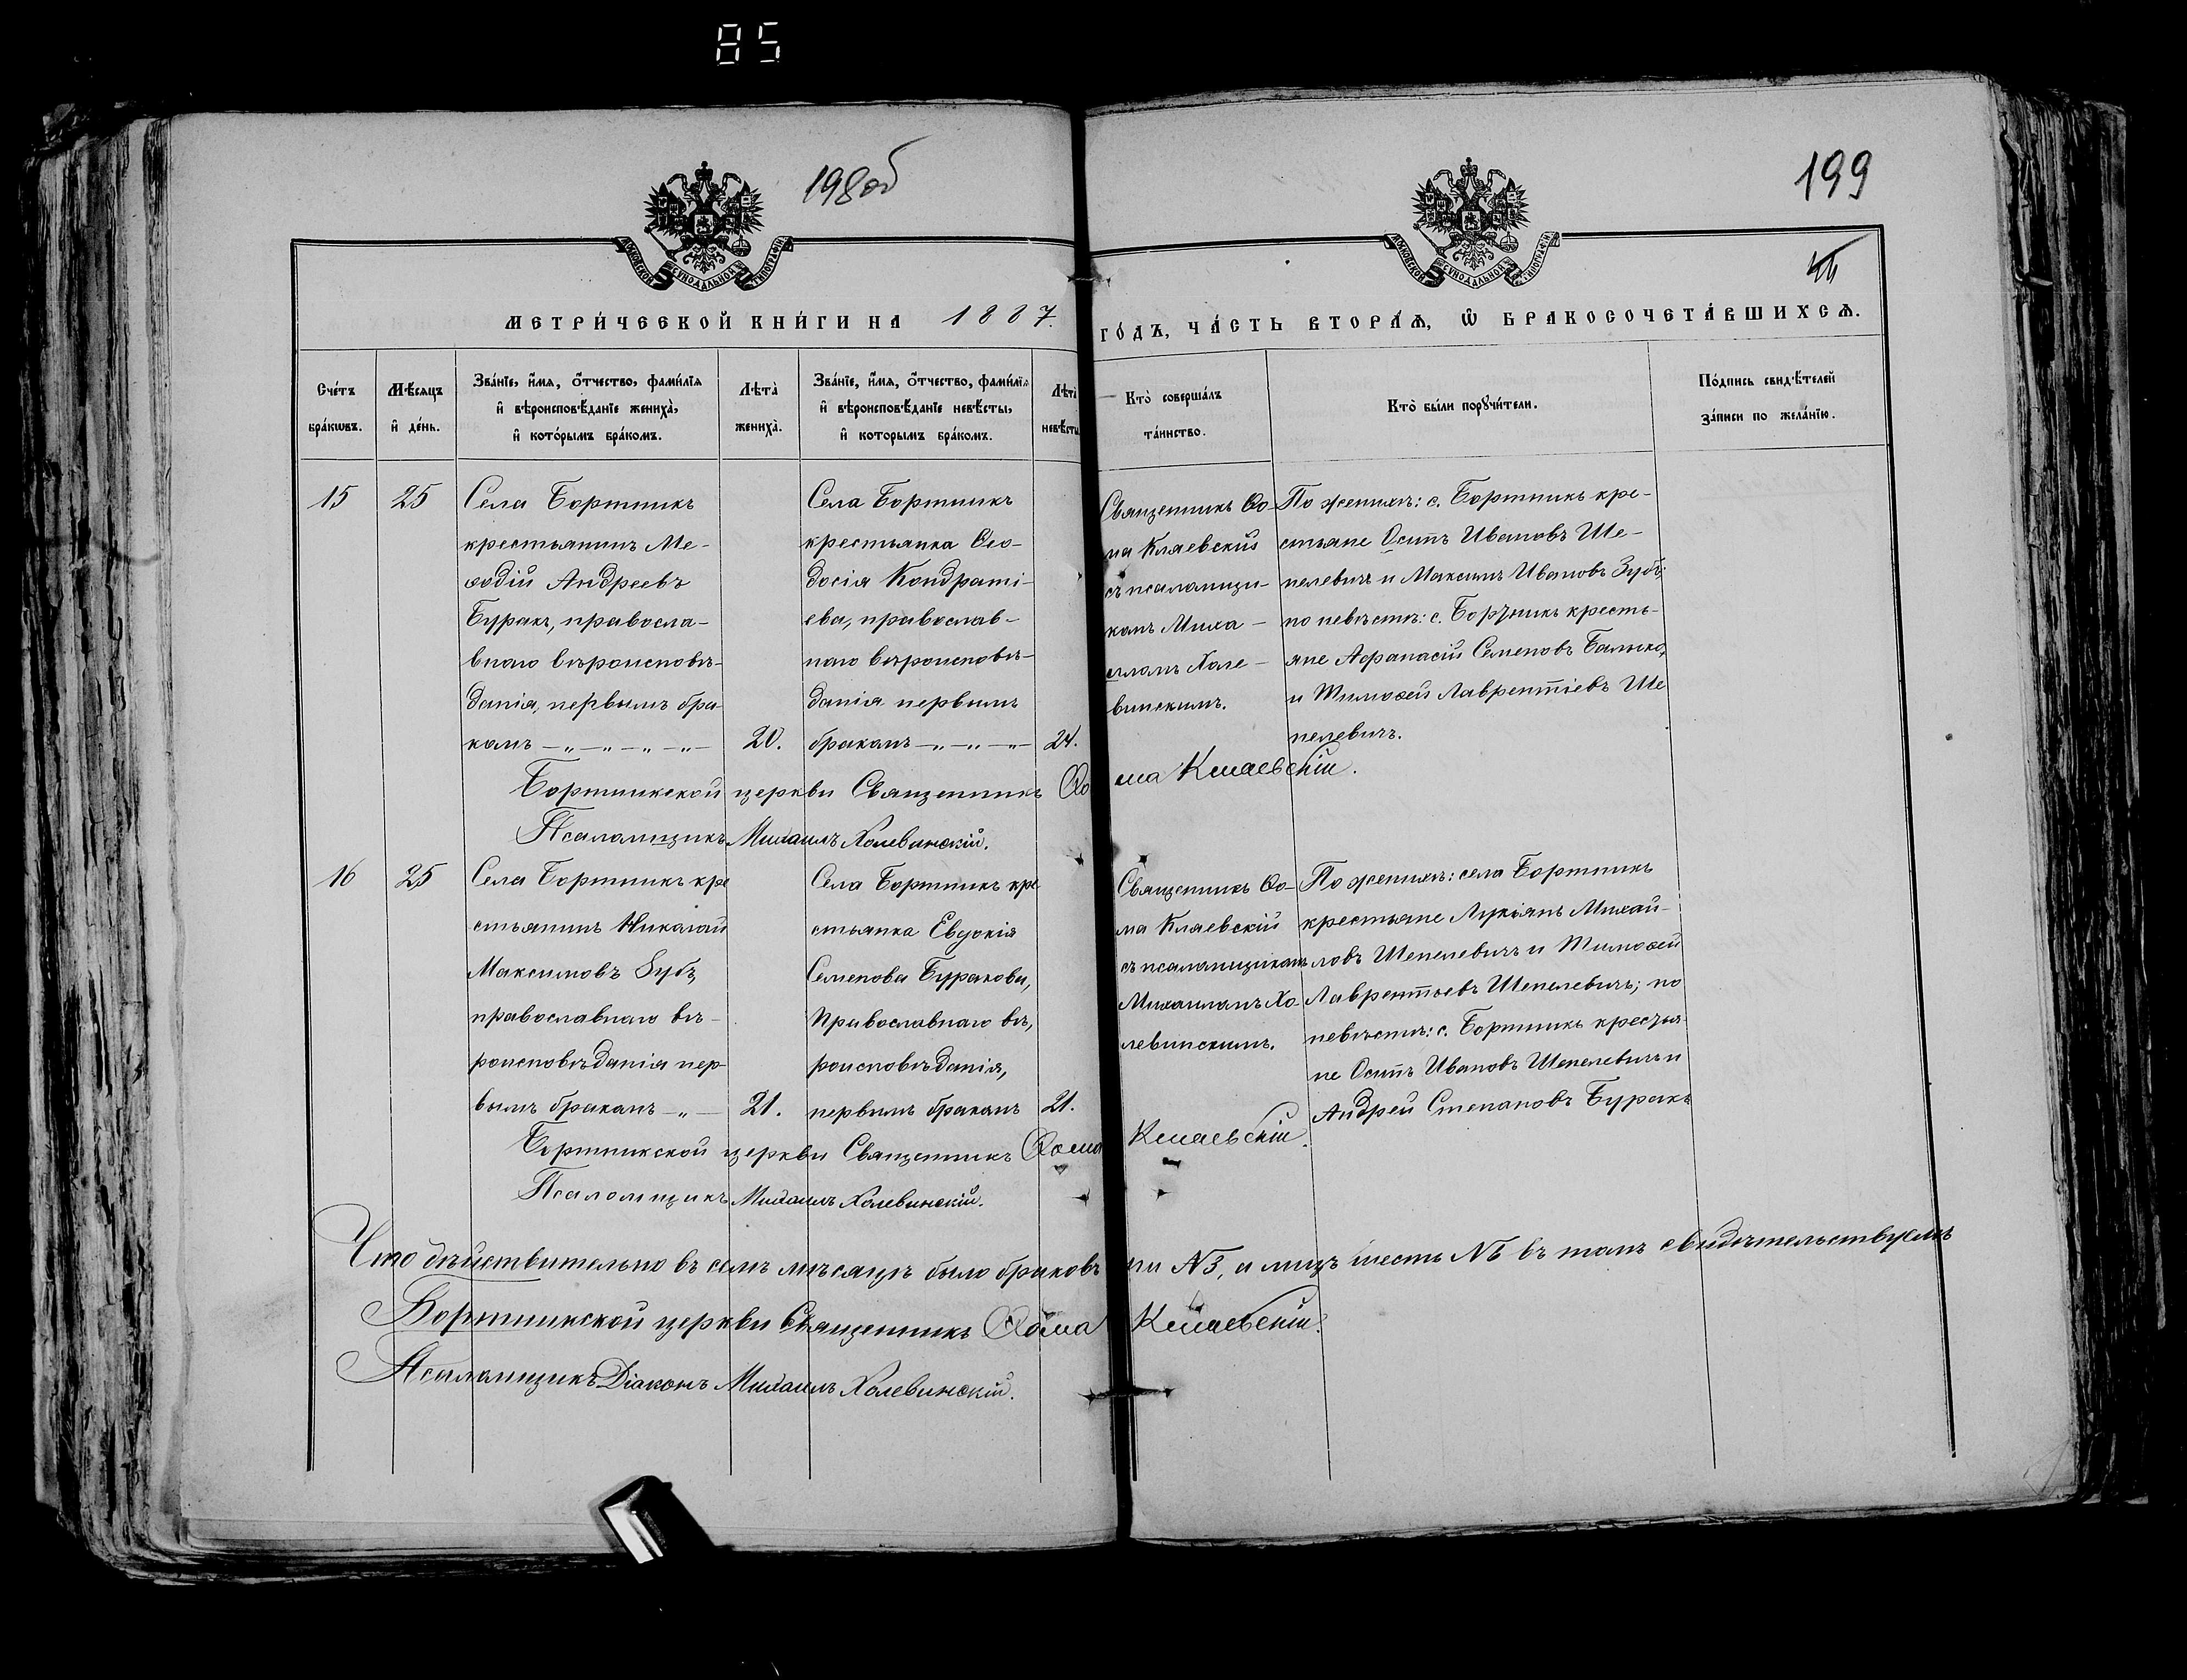 85
198об
199
МОСКОВСКОЙ СѴНОДАЛЬНОЙ ТИПОГРАФІИ
МОСКОВСКОЙ СѴНОДАЛЬНОЙ ТИПОГРАФІИ
МЕТРИ́ЧЕСКОЙ КНИ́ГИ НА 1887.
ГО́ДЪ, ЧА́СТЬ ВТОРА́Ѧ, Ѡ҆ БРАКОСОЧЕТА́ВШИХСѦ.
Сче́тъ
бра́кѡвъ.
Мѣ́сяцъ
и҆ де́нь.
Зва́нїе, и҆́мя, ѻ҆́тчество, фами́лїя
и҆ вѣроисповѣ́данїе жениха̀,
и҆ кото́рымъ бра́комъ.
Лѣта̀
жениха̀.
Зва́нїе, и҆́мя, ѻ҆́тчество, фами́лїя
и҆ вѣроисповѣ́данїе невѣ́сты,
и҆ которымъ бра́комъ.
Лѣта̀
невѣ́сты
Кто̀ соверша́лъ
та́инство.
Кто̀ бы́ли порꙋчи́тели.
По́дпись свидѣ́телей
за́писи по жела́нїю.
15
25
Села Бортникъ
крестьянинъ Ме-
ѳодій Андреевъ
Буракъ, правосла-
внаго вѣроисповѣ-
данія, первымъ бра-
комъ —„—„—„—„—
20.
Села Бортникъ
крестьянка Ѳео-
досія Кондраті-
ева, православ-
наго вѣроисповѣ-
данія первымъ
бракомъ —„—„—„—
24.
Священникъ Ѳо-
ма Кляевскій
съ псаломщи-
комъ Миха-
иломъ Холе-
винскимъ.
По женихѣ: с. Бортникъ кре-
стьяне Осипъ Ивановъ Ше-
пелевичъ и Максимъ Ивановъ Зубъ;
по невѣстѣ: с. Бортникъ кресть-
яне Аѳанасій Семеновъ
и Тимоѳей Лаврентіевъ Ше
пелевичъ.
Бортникской церкви Священникъ Ѳома Кляевскій.
Псаломщикъ Михаилъ Холевинскій.
16
25
Села Бортникъ кре
стьянинъ Николай
Максимовъ Зубъ,
православнаго вѣ-
роисповѣданія пер-
вымъ бракомъ —„—
21.
Села Бортникъ кре
стьянка Евдокія
Семенова Буракова,
Православнаго вѣ,
роисповѣданія,
первымъ бракомъ
21.
Священникъ Ѳо-
ма Кляевскій
съ псаломщикомъ
Михаиломъ Хо-
левинскимъ.
По женихѣ: села Бортникъ
крестьяне Лукіянъ Михай-
ловъ Шепелевичъ и Тимоѳей
Лаврентьевъ Шепелевичъ; по
невѣстѣ: с. Бортникъ крестья-
не Осипъ Ивановъ Шепелевичъ и
Андрей Степановъ Буракъ
Бортникской церкви Священникъ Ѳома Кляевскій.
Псаломщикъ Михаилъ Холевинскій.
Что дѣйствительно въ семъ мѣсяцѣ было браковъ три №3, а лицъ шесть №6 въ томъ свидѣтельствуемъ
Бортникской церкви Священникъ Ѳома Кляевскій.
Псаломщикъ Діаконъ Михаилъ Холевинскій.